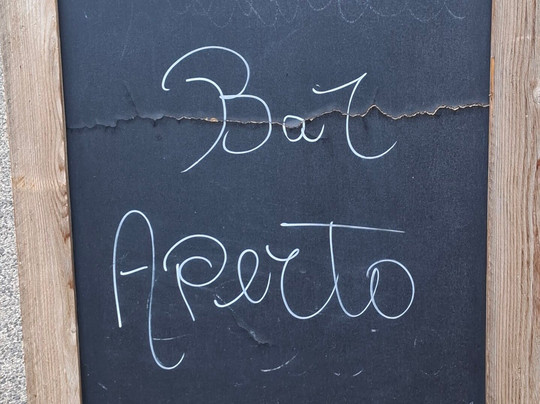 Bar
Aperto